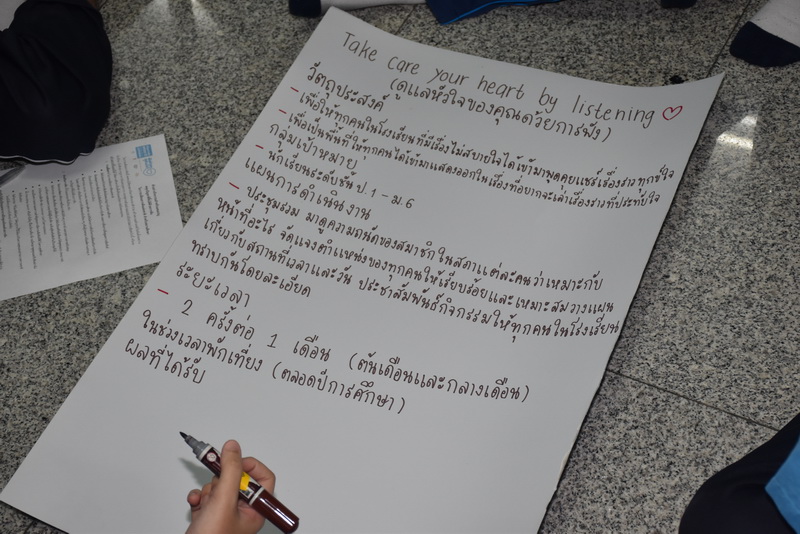 Take care your heart by listening ♡
(ดูแลหัวใจของคุณด้วยการฟัง)
วัตถุประสงค์
- เพื่อให้ทุกคนในโรงเรียนที่มีเรื่องไม่สบายใจได้เข้ามาพูดคุยแชร์เรื่องราว ทุกข์ใจ
- เพื่อเป็นพื้นที่ให้ทุกคนได้เข้ามาแสดงออกในเรื่องที่อยากจะเล่าเรื่องราวที่ประทับใจ
กลุ่มเป้าหมาย
- นักเรียนระดับชั้น ป.1 - ม.6
แผนการดำเนินงาน
- ประชุมรวม มาดูความถนัดของสมาชิกในสภาแต่ละคนว่าเหมาะกับ
หน้าที่อะไร จัดแจงตำแหน่งของทุกคนให้เรียบร้อยและเหมาะสมวางแผน
เกี่ยวกับสถานที่เวลาและวัน ประชาสัมพันธ์กิจกรรมให้ทุกคนในโรงเรียน
ทราบกันโดยละเอียด
ระยะเวลา
- 2 ครั้งต่อ 1 เดือน (ต้นเดือนและกลางเดือน)
ในช่วงเวลาพักเที่ยง (ตลอดปีการศึกษา)
ผลที่ได้รับ